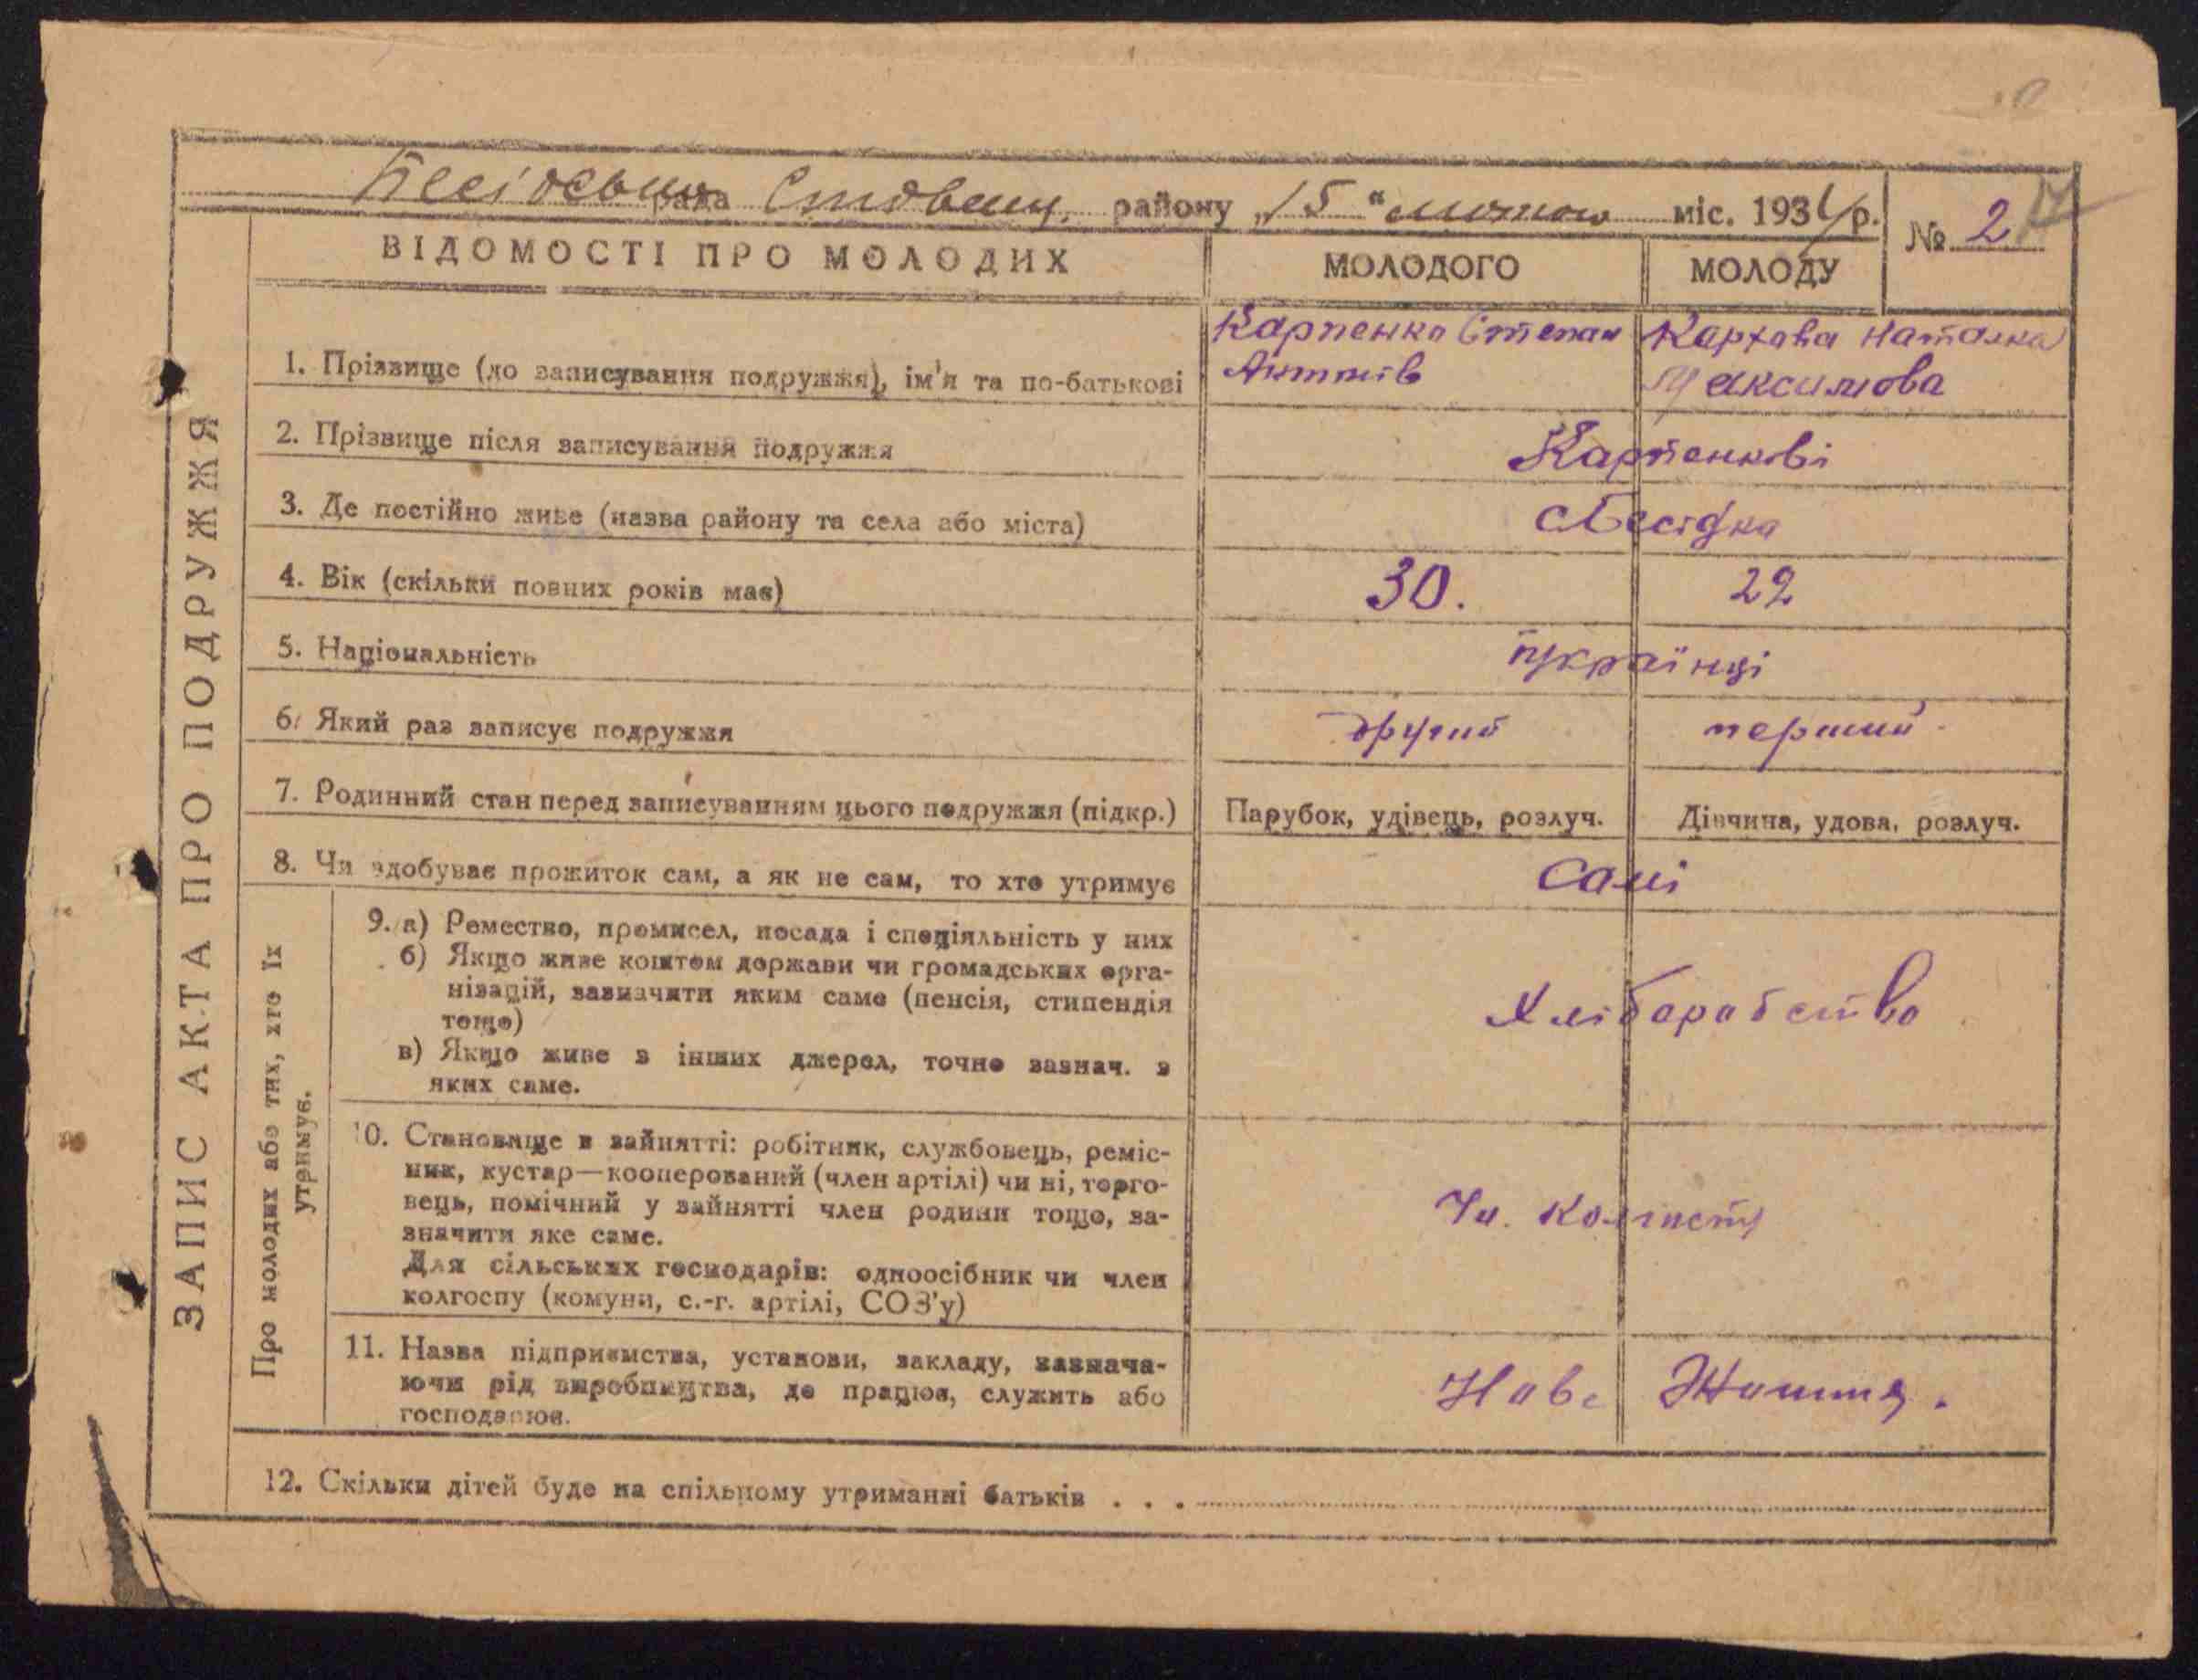 Бесідська рада Ставищ. району „15“ лютого міс. 1934 р.
№ 2
ВІДОМОСТІ ПРО МОЛОДИХ
МОЛОДОГО
МОЛОДУ
ЗАПИС АКТА ПРО ПОДРУЖЖЯ
1. Прізвище (до записування подружжя), ім'я та по-батькові
Карпенко Степан
Антонів
Наталка
Максимова
2. Прізвище після записування подружжя
Карпенкові
3. Де постійно живе (назва району та села або міста)
с Бесідка
4. Вік (скільки повних років має)
30.
22
5. Національність
українці
6. Який раз записує подружжя
другий
перший
7. Родинний стан перед записуванням цього подружжя (підкр.)
Парубок, удівець, розлуч.
Дівчина, удова, розлуч.
8. Чи здобуває прожиток сам, а як не сам, то хто утримує
Самі
Про молодих або тих, хто їх
утримує.
9. а) Ремество, промисел, посада і спеціяльність у них
б) Якщо живе коштом держави чи громадських орга-
нізацій, зазначити яким саме (пенсія, стипендія
тощо)
в) Якщо живе з інших джерел, точно зазнач. з
яких саме.
Хліборобство
10. Становище в зайнятті: робітник, службовець, реміс-
ник, кустар—кооперований (член артілі) чи ні, торго-
вець, помічний у зайнятті член родини тощо, за-
значити яке саме.
Для сільських господарів: одноосібник чи член
колгоспу (комуни, с.-г. артілі, СОЗ'у)
Чл. колгоспу
11. Назва підприємства, установи, закладу, зазнача-
ючи рід виробництва, де працює, служить або
господарює.
Нове Життя.
12. Скільки дітей буде на спільному утриманні батьків . . .